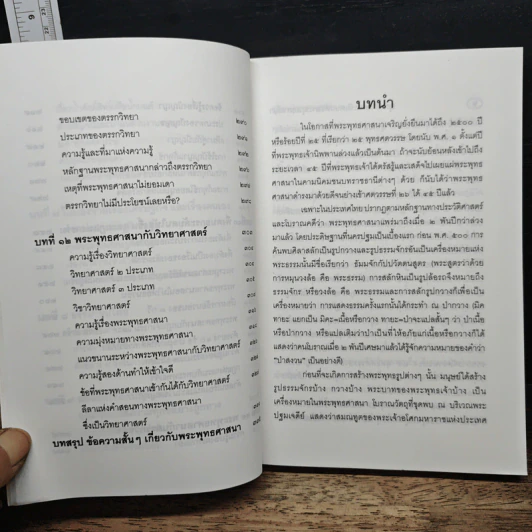 ขอบเขตของตรรกวิทยา
ประเภทของตรรกวิทยา
ความรู้และที่มาแห่งความรู้
หลักฐานพระพุทธศาสนากล่าวถึงตรรกวิทยา
เหตุที่พระพุทธศาสนาไม่ยอมเดา
ตรรกวิทยาไม่มีประโยชน์เลยหรือ?
บทที่ ๑๒ พระพุทธศาสนากับวิทยาศาสตร์
ความรู้เรื่องวิทยาศาสตร์
วิทยาศาสตร์ ๒ ประเภท
วิทยาศาสตร์ ๓ ประเภท
วิชาวิทยาศาสตร์
ความรู้เรื่องพระพุทธศาสนา
ความมุ่งหมายทางพระพุทธศาสนา
แนวขนานระหว่างพระพุทธศาสนากับวิทยาศาสตร์
ความรู้สองด้านทำให้เข้าใจดี
ข้อที่พระพุทธศาสนาเข้ากันได้กับวิทยาศาสตร์
ลีลาแห่งคำสอนทางพระพุทธศาสนา
ซึ่งเป็นวิทยาศาสตร์
บทสรุป ข้อความสั้นๆ เกี่ยวกับพระพุทธศาสนา
บทนำ
ในโอกาสที่พระพุทธศาสนาเจริญยั่งยืนมาได้ถึง ๒๕๐๐ ปี
หรือร้อยปีที่ ๒๕ ที่เรียกว่า ๒๕ พุทธศตวรรษ โดยนับ พ.ศ. ๑ ตั้งแต่ปี
ที่พระพุทธเจ้านิพพานล่วงแล้วเป็นต้นมา ถ้าจะนับย้อนหลังเข้าไปถึง
ระยะเวลา ๔๕ ปีที่พระพุทธเจ้าได้ตรัสรู้และเสด็จไปเผยแผ่พระพุทธ
ศาสนาในคามนิคมชนบทราชธานีต่างๆ ด้วย ก็นับได้ว่าพระพุทธ
ศาสนาดำรงมาด้วยดีจนย่างเข้าศตวรรษที่ ๒๖ ได้ ๔๕ ปีแล้ว
เฉพาะในประเทศไทย ปรากฏตามหลักฐานทางประวัติศาสตร์
และโบราณคดีว่า พระพุทธศาสนาแพร่มาถึงเมื่อ ๒ พันปีกว่าล่วง
มาแล้ว โดยประดิษฐานที่นครปฐมเป็นเบื้องแรก ก่อน พ.ศ. ๕๐๐ การ
ค้นพบศิลาสลักเป็นรูปกวางและรูปธรรมจักรอันเป็นเครื่องหมายแห่ง
พระธรรมนั้นมีชื่อเรียกว่า ธัมมจักกัปปวัตตนสูตร (พระสูตรว่าด้วย
การหมุนวงล้อ คือ พระธรรม) การสลักหินเป็นรูปล้อรถจึงหมายถึง
ธรรมจักร หรือวงล้อ คือ พระธรรมและการสลักรูปกวางก็เพื่อเป็น
เครื่องหมายว่า การแสดงธรรมครั้งแรกนั้นได้กระทำ ณ ป่ากวาง (มิค
ทายะ แยกเป็น มิคะ=เนื้อหรือกวาง ทายะ=ป่าจะแปลสั้นๆ ว่า ป่าเนื้อ
หรือป่ากวาง หรือแปลเติมว่าป่าเป็นที่ให้อภัยแก่เนื้อหรือกวางก็ได้
แสดงว่าคนโบราณเมื่อ ๒ พันปีเศษมาแล้วได้รู้จักความหมายของคำว่า
"ป่าสงวน" เป็นอย่างดี)
ก่อนที่จะเกิดการสร้างพระพุทธรูปต่างๆ นั้น มนุษย์ได้สร้าง
รูปธรรมจักรบ้าง กวางบ้าง พระบาทของพระพุทธเจ้าบ้าง เป็น
เครื่องหมายในพระพุทธศาสนา โบราณวัตถุที่ขุดพบ ณ บริเวณพระ
ปฐมเจดีย์ แสดงว่าสมณทูตของพระเจ้าอโศกมหาราชแห่งประเทศ